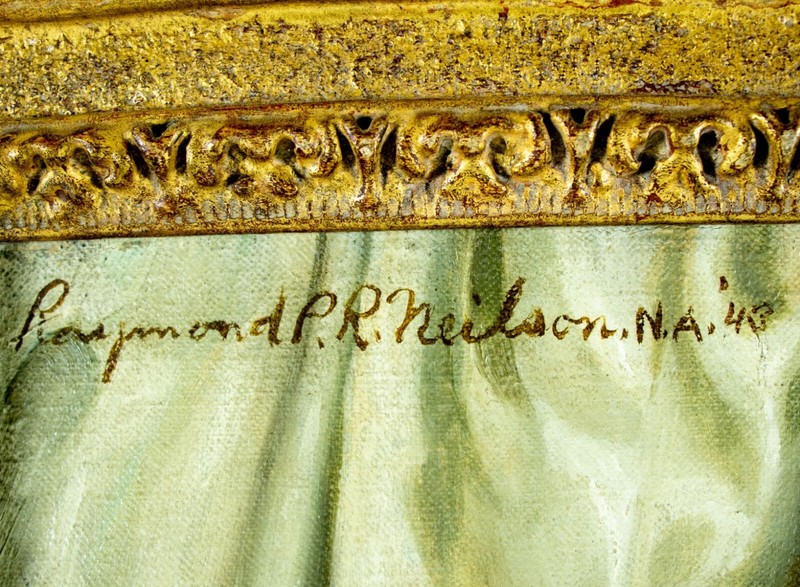 Raymond P. R. Neilson. N.A. '43